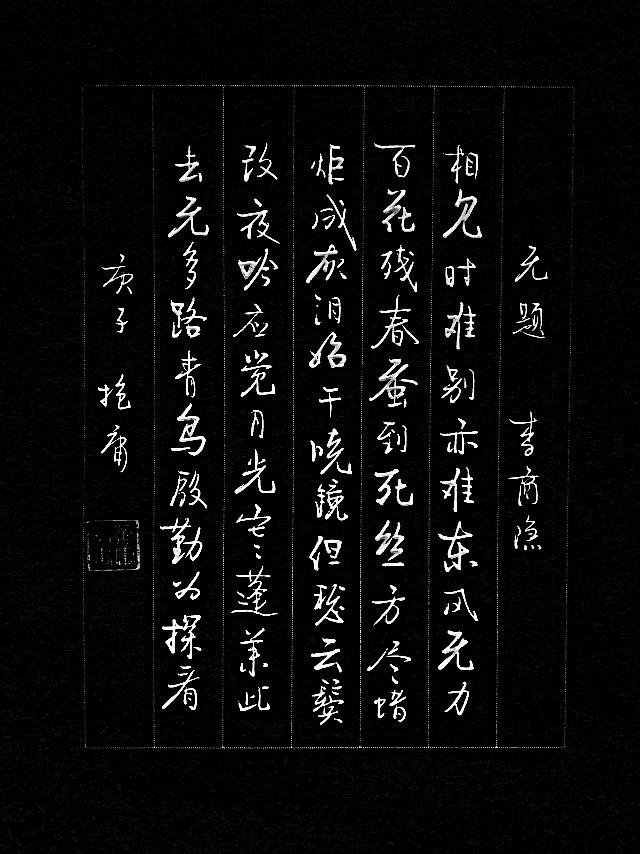 无题 李商隐
相见时难别亦难东风无力
百花残春蚕到死丝方尽蜡
炬成灰泪始干晓镜但愁云鬓
改夜吟应觉月光寒蓬莱此
去无多路青鸟殷勤为探看
庚子 抱庸